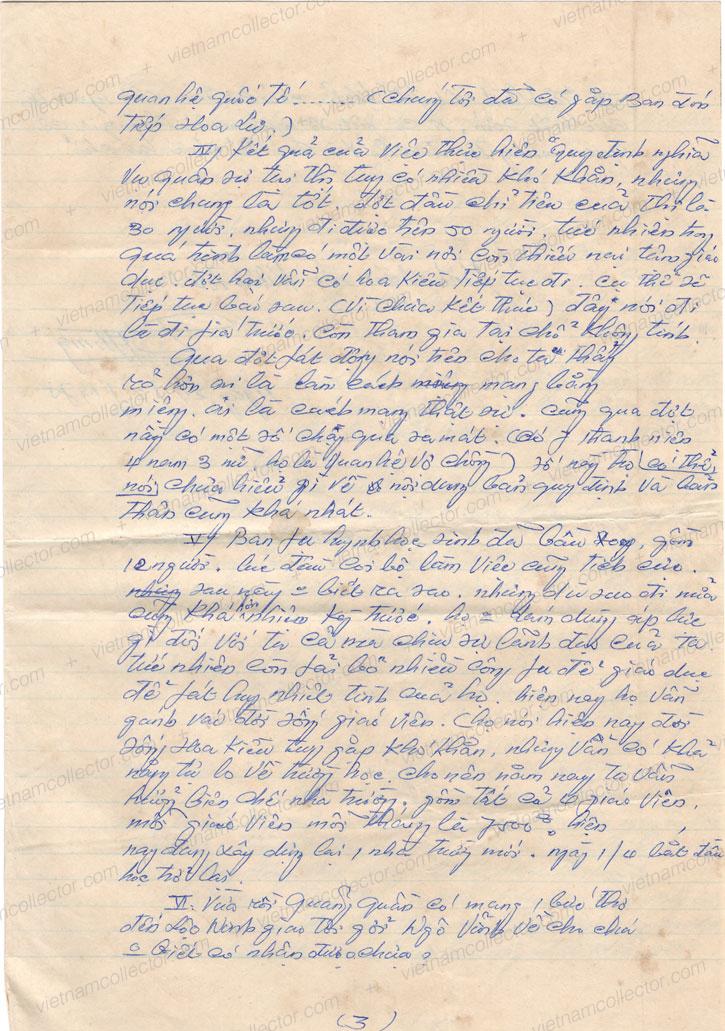 quan hệ quốc tế ........ (chúng tôi đã có gặp Ban đón
tiếp Hoa Lư,)
IV/ Kết quả của việc thực hiện quy định nghĩa
vụ quân sự tuy có nhiều khó khăn, nhưng
nói chung là tốt, đợt đầu chỉ tiêu của thì là
30 người, nhưng đi được trên 50 người. tuy nhiên trong
quá trình làm có một vài nơi còn thiếu giáo
dục. đợt hai vẫn có hoa kiều tiếp tục đi. cụ thể sẽ
tiếp tục báo sau. (vì chưa kết thúc) đây nói đi
là đi còn tham gia tại chỗ không tính.
Qua đợt fát động nói trên cho ta thấy
rỏ hơn ai là làm cách mạng bằng
miệng, ai là cách mạng thật sự. cũng qua đợt
nầy có một số chạy qua (có 7 thanh niên
4 nam 3 nữ, họ là quan hệ vợ chồng) số nầy họ có thể
nói chưa hiểu gì về nội dung bản quy định và bản
thân cũng khá nhát.
V/ Ban fụ huynh học sinh đã bầu xong, gồm
12 người. lúc đầu làm việc cũng tích cực.
sau nầy = biết ra sao. nhưng dù sao đi nữa
cũng khá hơn nhiều kỳ trước. họ = dám dùng áp lực
gì đối với ta cả mà chịu sự lãnh đạo của ta.
tuy nhiên còn fải bỏ nhiều công fu để giáo dục
để fát huy nhiệt tình của họ. hiện nay họ vẫn
gánh vác đời sống giáo viên. (cho nói hiện nay đời
sống Hoa kiều tuy gặp khó khăn, nhưng vẫn có khả
năng tự lo về trường học. cho nên năm nay ta vẫn
biên chế nhà trường. gồm tất cả 6 giáo viên,
mỗi giáo viên mỗi tháng là 7000 hiện
nay đang xây dựng lại 1 nhà trường mới. ngày 1/4 bắt đầu
học trở lại.
VI. Vừa rồi Quảng quân có mang 1 bức thơ
đến Lộc Ninh giao tôi gởi Ngô Vĩnh về cho chú
= biết có nhận được chưa ?
(3)
vietnamcollector.com